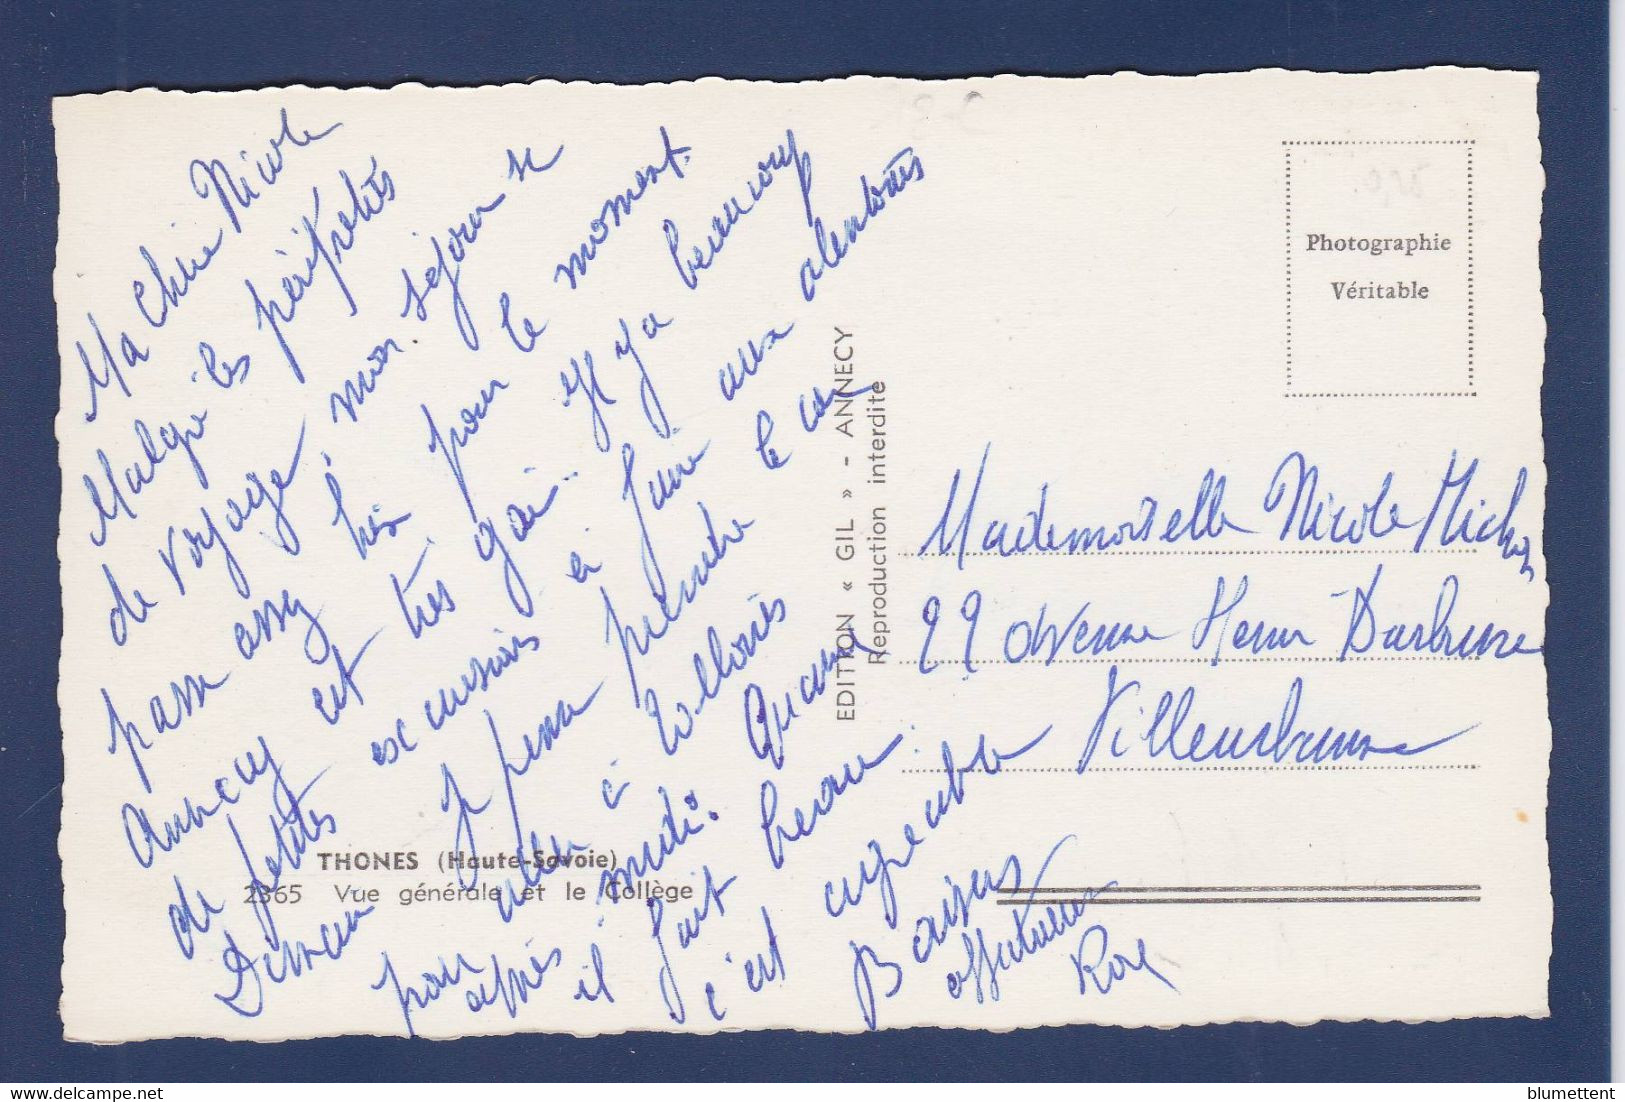 Ma Chère Nicole
Malgré les péripéties
de voyage mon séjour se
passe assez bien pour le moment.
Annecy est très gai. Il y a beaucoup
de petites excursions à faire aux alentours
Demain je pense prendre le car
pour aller à Talloires
après midi. Quand
il fait beau
c'est agréable
Baisers
affectueux
Rose
THONES (Haute-Savoie)
2365 Vue générale et le Collège
EDITION « GIL » - ANNECY
Reproduction interdite
Photographie
Véritable
Mademoiselle Nicole
99 avenue Henri Barbusse
Villeurbanne
blumettent